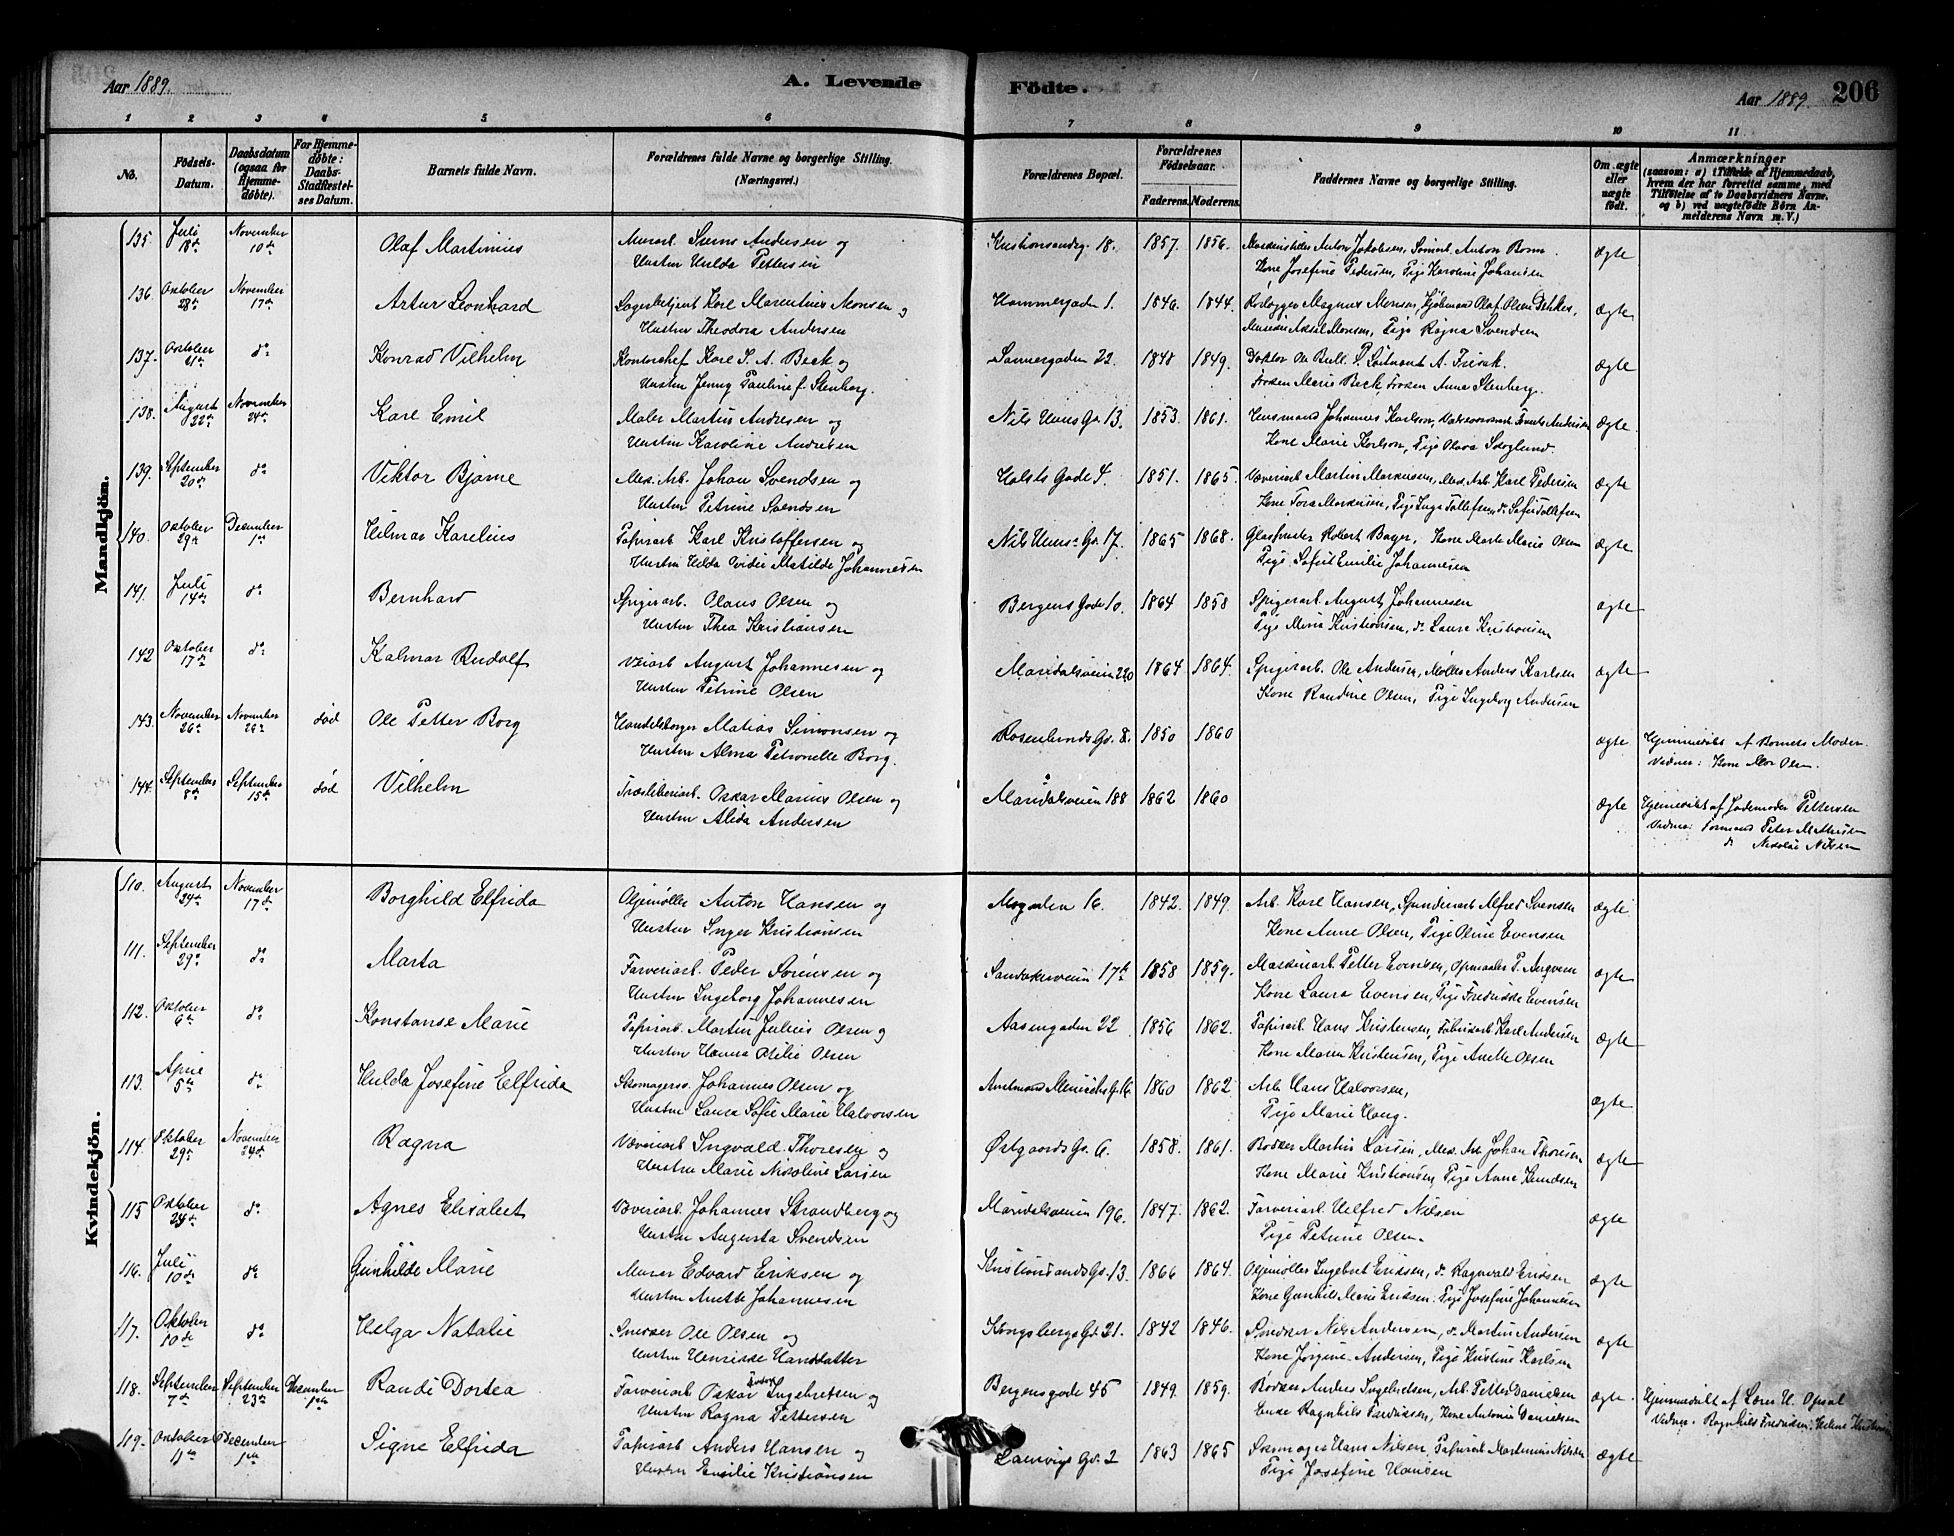 Aar 1889.
A. Levende Födte.
Aar 1889.
206
1 2 3 4 5 6 7 8 9 10 11
No.
Födsels-Datum.
Daabsdatum (ogsaa for Hjemmedöbte).
For Hjemmedöbte: Daabs-Stadfæstelses Datum.
Barnets fulde Navn.
Forældrenes fulde Navne og borgerlige Stilling. (Næringsvei.)
Forældrenes Bopæl.
Forældrenes Födselsaar.
Faderens. Moderens.
Faddernes Navne og borgerlige Stilling.
Om ægte eller uægte födt.
Anmærkninger
(saasom: a) i Tilfælde af Hjemmedaab, hvem der har forrettet samme, med Tilföielse af to Daabsvidners Navne, og b) ved uægtefödte Börn Anmelderens Navn m. V.)
Mandkjön.
135. Juli 18de November 10de Olaf Martinius
Andersen og
Hustru Hulda Pettersen
Kristiansandsg. 18. 1857. 1856. Anton Jakobsen, Anton
Kone Josefine Pedersen, Pige Karoline Johansen
ægte
136. Oktober 28de November 17de Artur Leonhard
Lagerbetjent Karl Marentius Monsen og
Hustru Theodora Andersen
Hammergaden 1. 1846. 1844. Magnus Monsen, Olaf Olsen
Aksel Monsen, Pige Ragna Svendsen
ægte
137. Oktober do Konrad Vilhelm
Kontorchef Karl S. A. Beck og
Hustru Jenny Pauline f. Stenberg.
Sannergaden 22. 1848 1849. Doktor Bull. A.
Frøken Marie Beck, Frøken Anna Stenberg.
ægte
138. August 22de November 24de Karl Emil
Maler Martin Andresen og
Hustru Karoline Andresen
Nils Huus Gd. 13. 1853. 1861. Johannes Karlson, Andersen
Kone Marie Karlson, Pige Olava Skoglund.
ægte
139. September 20de do Viktor Bjarne
Mek. Arb. Johan Svendsen og
Hustru Petrine Svendsen
Holsts Gade 4. 1851. 1865. Væveriarb. Martin Markussen, Mek. Arb. Karl Pedersen
Kone Tora Markussen, Pige Inga Tollefsen, do Sofie Tollefsen
ægte
140. Oktober 29de December 1ste Hilmar Karelius
Papirarb. Karl Kristoffersen og
Hustru Hilda Matilde Johannessen
Nils Huus Gd. 17. 1865 1868. Robert Kone Marte Marie Olsen
Pige Sofie Emilie Johannesen
ægte
141. Juli 14de do Bernhard
Spigerarb. Olaus Olsen og
Hustru Thea Kristiansen
Bergens Gade 10. 1864 1858 Spigerarb. August Johannesen
Pige Maria Kristiansen, do Laura Kristiansen
ægte
142 Oktober 17de do Kalmar Rudolf
August Johannesen og
Hustru Petrine Olsen
Maridalsveien 220 1864 1864. Spigerarb. Ole Andersen, Møller Anders Karlsen
Kone Randine Olsen, Pige Ingeborg Andersen
ægte
143. November 26de November død Ole Petter Borg
Handelsborger Matias Simonsen og
Hustru Alma Petronelle Borg.
Rosenlunds Gd. 8. 1850 1860
ægte Hjemmedøbt af Barnets Moder.
Vidner: Kone Olsen.
144. September 8de September 15de død Vilhelm
Oskar Marius Olsen og
Hustru Alida Andersen
Maridalsveien 188 1862 1860
ægte Hjemmedøbt af Jordemoder Pettersen
Vidner: Formand Peter
do Nikolai Nilsen
Kvindekjön.
110. August November 17de Borghild Elfrida
Oljemøller Anton Hansen og
Hustru Inger Kristiansen
16. 1842. 1849. Arb. Karl Hansen, Alfred Svensen
Kone Anne Olsen, Pige Oline Evensen
ægte
111. September 29de do Marta
Farveriarb. Peder Sørensen og
Hustru Ingeborg Johannesen
Sandakerveien 17 1858 1859. Maskinarb. Petter Evensen, P.
Kone Laura Evensen, Pige Fredrikke Evensen
ægte
112. Oktober 6te do Konstanse Marie
Papirarb. Martin Julius Olsen og
Hustru Hanna Otilie Olsen
Aasengaden 22 1856 1862. Papirarb. Hans Kristensen, Fabrikarb. Karl Andersen
Kone Maren Kristensen, Pige Anette Olsen
ægte
113. April 5te do Hulda Josefine Elfrida
Skomagersv. Johannes Olsen og
Hustru Laura Sofie Marie Halvorsen
Amtmand Gd. 16. 1860 1862 Arb. Hans Halvorsen,
Pige Marie Haug.
ægte
114. Oktober 29de November 24de Ragna
Væveriarb. Ingvald Thoresen og
Hustru Marie Nikoline Larsen
Østgaards Gd. 6. 1858. 1861. Bødker Martin Larsen, Mek. Arb. Johan Thoresen
Kone Marie Kristiansen, Pige Anne Knudsen
ægte
115 Oktober 24de do Agnes Elisabet
Væveriarb. Johannes Strandberg og
Hustru Augusta Svendsen
Maridalsveien 196. 1847. 1862. Farveriarb. Nilsen
Pige Petrine Olsen.
ægte
116. Juli 10de do Gunhilde Marie
Murer Edvard Eriksen og
Hustru Anette Johannesen
Kristiansands Gd. 13. 1866 1864. Oljemøller Ingebret Eriksen, do Ragnvald Eriksen
Kone Gunhild Marie Eriksen. Pige Josefine Johannesen
ægte
117. Oktober 10de do Helga Natalie
Snekker Ole Olsen og
Hustru Henrikke Hansdatter
Kongsbergs Gd. 21. 1842 1846. Snekker Nils Andersen, do Martin Andersen
Kone Jørgine Andersen, Pige Kristine Karlsen
ægte
118. September 7de September 23de December 1ste Randi Dortea
Farveriarb. Oskar Ingebretsen og
Hustru Ragna Pettersen
Bergensgade 45 1849. 1859. Bødker Anders Ingebretsen, Arb. Petter Danielsen
Enke Ragnhild Fredriksen, Kone Antonie Danielsen
ægte. Hjemmedøbt af H. Opsal
Vidner. Ragnhild Fredriksen, Helene
119. Oktober 11te December 1ste Signe Elfrida
Papirarb. Anders Hansen og
Hustru Emilie Kristiansen
Laurvigs Gd. 2 1863 1865 Skomager Hans Nilsen, Papirarb. Martinius Nilsen
Pige Josefine Hansen
ægte